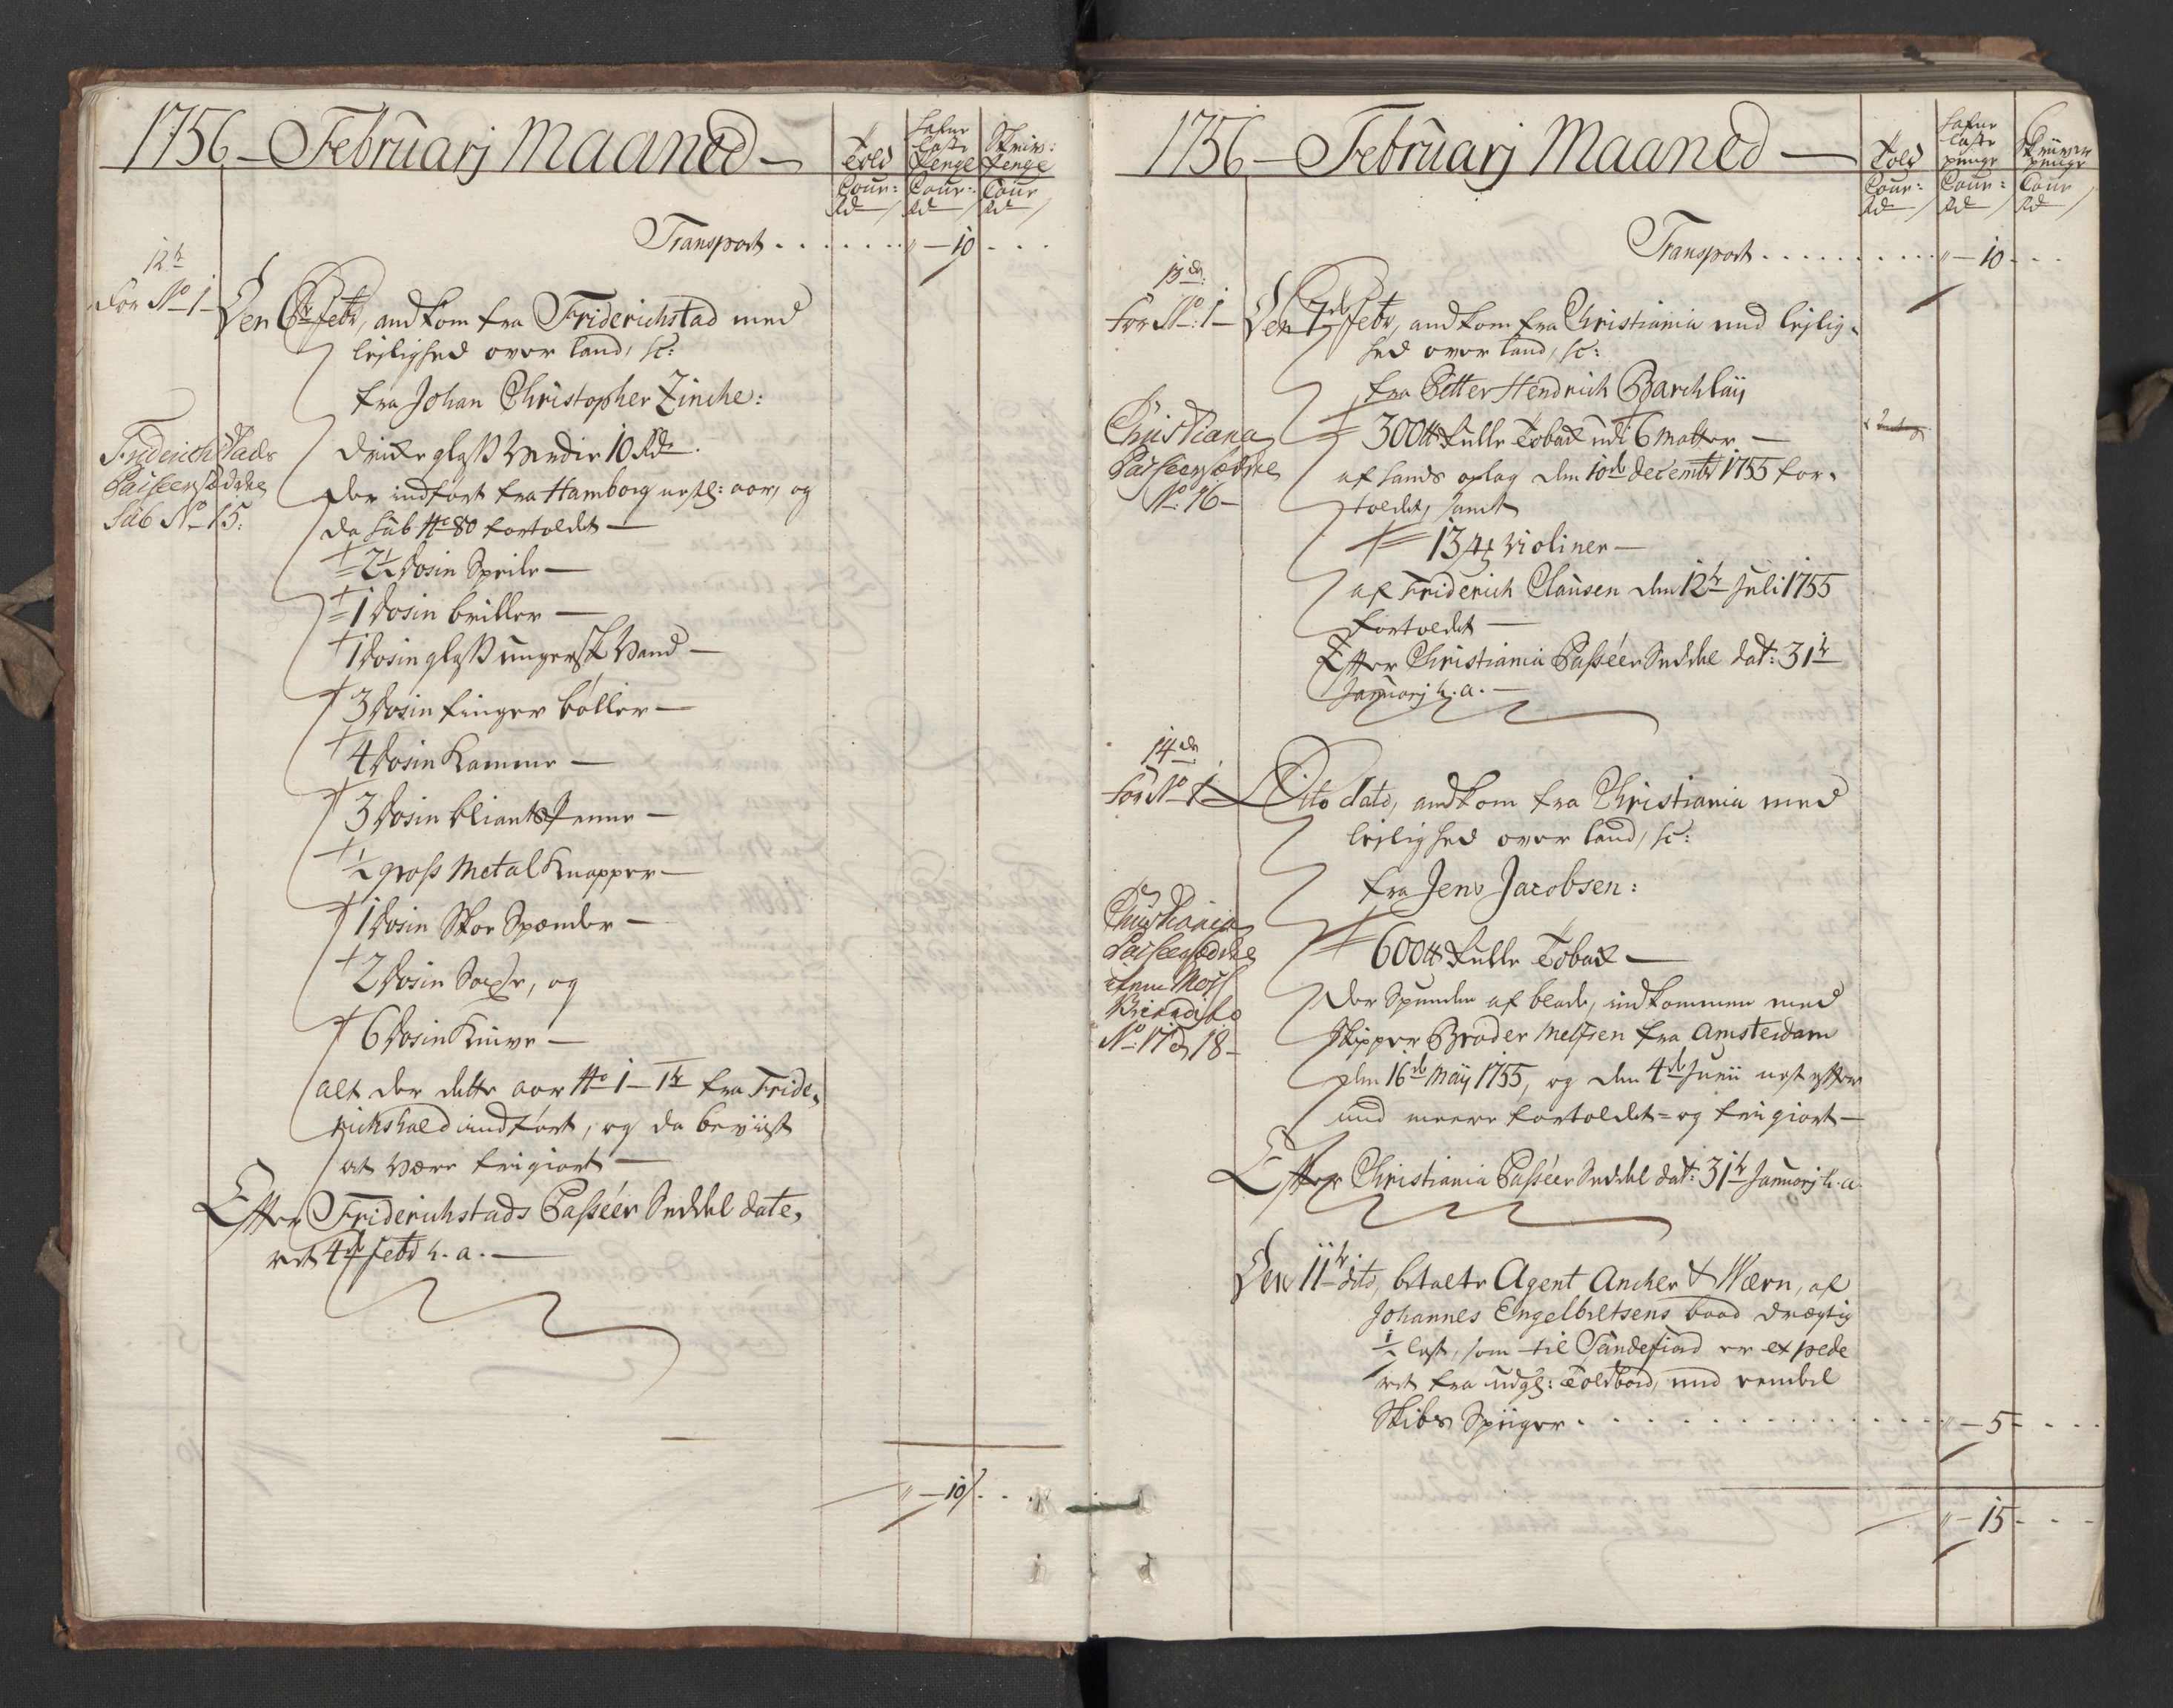 1756 – Februarj Maaned –
Told
Cour:
Rd
Hafne
Laste
Penge
Cour:
Rd
Skriv:
Penge
Cour
Rd
Transport . . . . . . . " – 10 . . .
12te
For No 1 –
Den 6te Febr, andkom fra Friderichstad med
lejlighed over land, sc:
fra Johan Christopher Zinche:
Friderichstads
Passeersedle
Sub No 15:
Drike glass Verdie 10 Rd.
der indført fra Hamborg nestl: aar, og
da sub No 80 fortoldet –
2 1/2 Dosin Speile –
1 Dosin briller –
1 Dosin glass ungersk Vand –
3 Dosin finger bøller –
4 Dosin Kamme –
3 Dosin bliantspenne –
1/2 gross Metal Knapper –
1 Dosin Skoe Spænder –
2 Dosin Saxe, og
6 Dosin Knive –
alt der dette aar No 1 – 1te fra Fride,
richshald indført, og da beviist
at være frigiort –
Efter Friderichstads Passéer Seddel date,
ret 4de Febr h. a. –
" – 10 . . .
1756 – Februarj Maaned –
Told
Cour:
Rd
Hafne
Laste
penge
Cour:
Rd
Skriver
penge
Cour
Rd
Transport . . . . . . . . . . " – 10 . . .
13de:
For No: 1 –
Den 7de Febr, andkom fra Christiania med lejlig,
hed over land, sc:
fra Petter Hendrich Barchlaÿ
Christiana
Passeersedle
No: 16 –
300 ℔ Rulle Tobak udi 6 Matter –
af hands oplag den 10de Decembr 1755 for,
toldet, samt
13 st: Violiner –
af Friderich Clausen den 12te Juli 1755
fortoldet –
Efter Christiania Passéer Seddel dat: 31te
Januarj h. a. –
14de
For No 1
Dito dato, andkom fra Christiania med
lejlighed over land, sc:
fra Jens Jacobsen:
Christiania
Passeersedle
Moss
dito
No: 17 & 18 –
600 ℔ Rulle Tobak –
der Spunden af blade, indkommen med
Skipper Broder Melfsen fra Amsterdam
den 16de Maÿ 1755, og den 4de Junii nest efter
med meere fortoldet = og frigiort –
Efter Christiania Passéer Seddel dat: 31te Januarj h. a.
Den 11te dito, betalte Agent Ancher & Wærn, af
Johannes Engelbretsens baad drægtig
1/2 læst, som til Sandefiord er expede
ret fra udgl: Toldbod, med
Skibs Spiiger . . . . . . . . . . . . " – 5 – . . .
" – 15 – . .